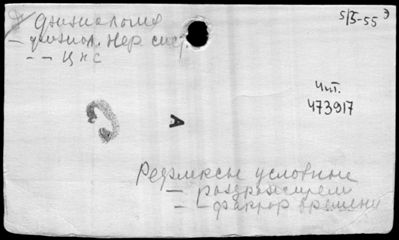 Физиология
- физиол. нер. сист.
- - ЦНС
5/V-55 э
Чит.
473917
A
Рефлексы условные
- раздражители
- фактор времени